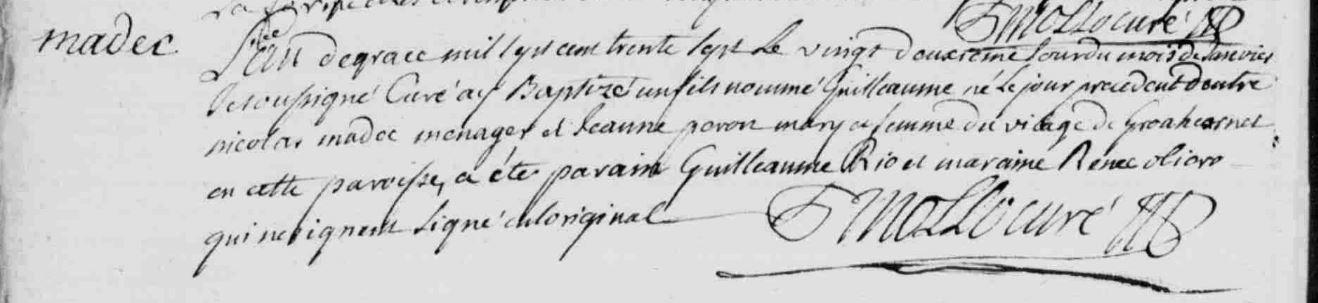 F Mollo curé
madec
L'an de grace mil sept cent trente sept le vingt deuxieme jour du mois de Janvier
Je soussigné Curé ay Baptizé un fils nommé Guilleaume né le jour precedent d'entre
nicolas madec menager et Jeanne peron mary et femme du village de
en cette paroisse, a été parain Guilleaume Rio et maraine Renee oliero
qui ne signent signé en l'original F Mollo curé